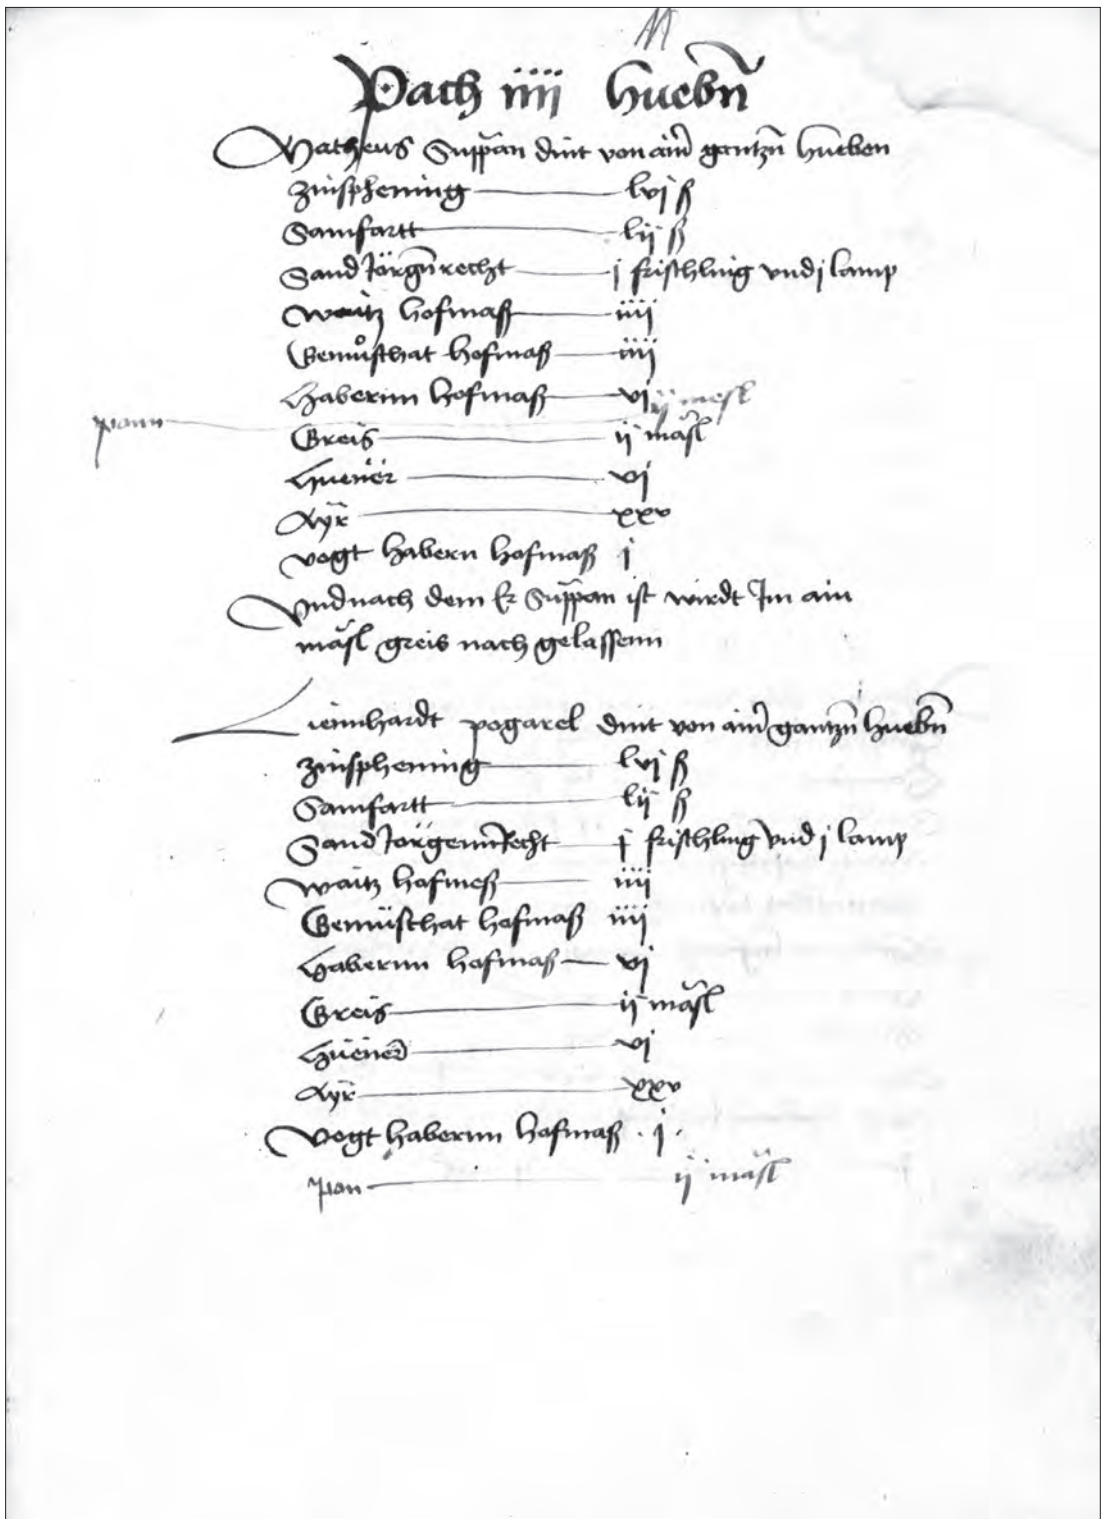 11
Pach iiij Huebn̄
Matheus Suppan dint von aim̄ gantzn̄ hueben
Zinsphening lvj ß
Samfartt lij ß
Sand Jörgn̄recht j frischling vnd j lamp
Waitz hofmaß iiij
Gemůsthat hofmaß iiij
Habernn hofmaß vj
pann ij mesl
Greis ij mäsl
Huener vj
Ayr̄ xxv
vogt habern hofmaß j
Vnd nach dem Er Suppan ist wirdt Im ain
mäsl greis nach gelassenn
Liennhardt pogarel dint von aim̄ gantzn̄ huebn̄
Zinsphening lvj ß
Samfartt lij ß
Sand Jörgenn Recht j frischling vnd j lamp
Waitz hofmeß iiij
Gemüsthat hofmaß iiij
Habernn hofmaß vj
Greis ij mäsl
Hüener vj
Ayr̄ xxv
Vogt habernn hofmaß . j .
pan ij mäsl